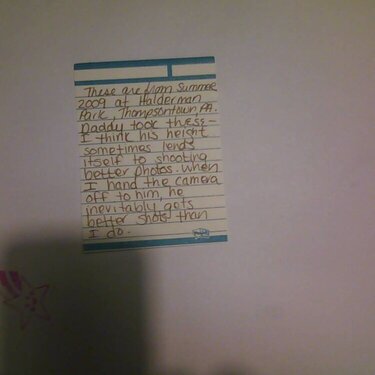 These are from Summer
2009 at Halderman
Park, Thompsontown PA.
Daddy took these—
I think his height
sometimes lends
itself to shooting
better photos. When
I hand the camera
off to him, he
inevitably gets
better shots than
I do.